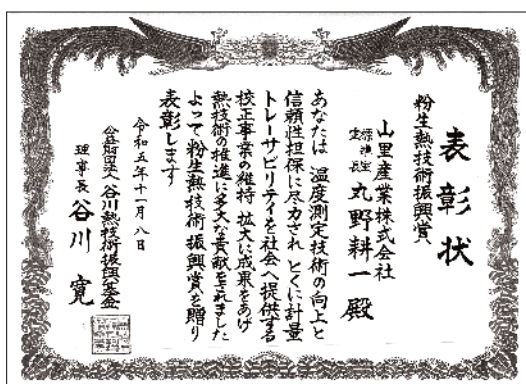 表彰状
粉生熱技術振興賞
山里産業株式会社
標準室
室長 丸野耕一 殿
あなたは 温度測定技術の向上と
信頼性担保に尽力され とくに計量
トレーサビリティを社会へ提供する
校正事業の維持 拡大に成果をあげ
熱技術の推進に多大な貢献をされました
よって粉生熱技術振興賞を贈り
表彰します
令和五年十一月八日
公益財団法人 谷川熱技術振興基金
理事長 谷川 寛